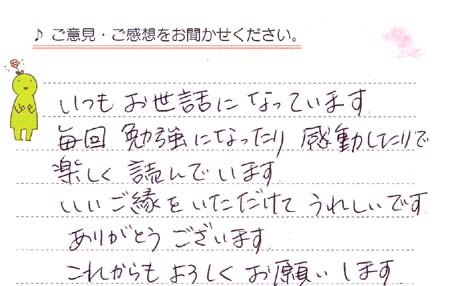 ♪ ご意見・ご感想をお聞かせください。
いつも お世話に なっています
毎回 勉強になったり 感動したりで
楽しく 読んでいます
いいご縁を いただけて うれしいです
ありがとう ございます
これからも よろしく お願いします